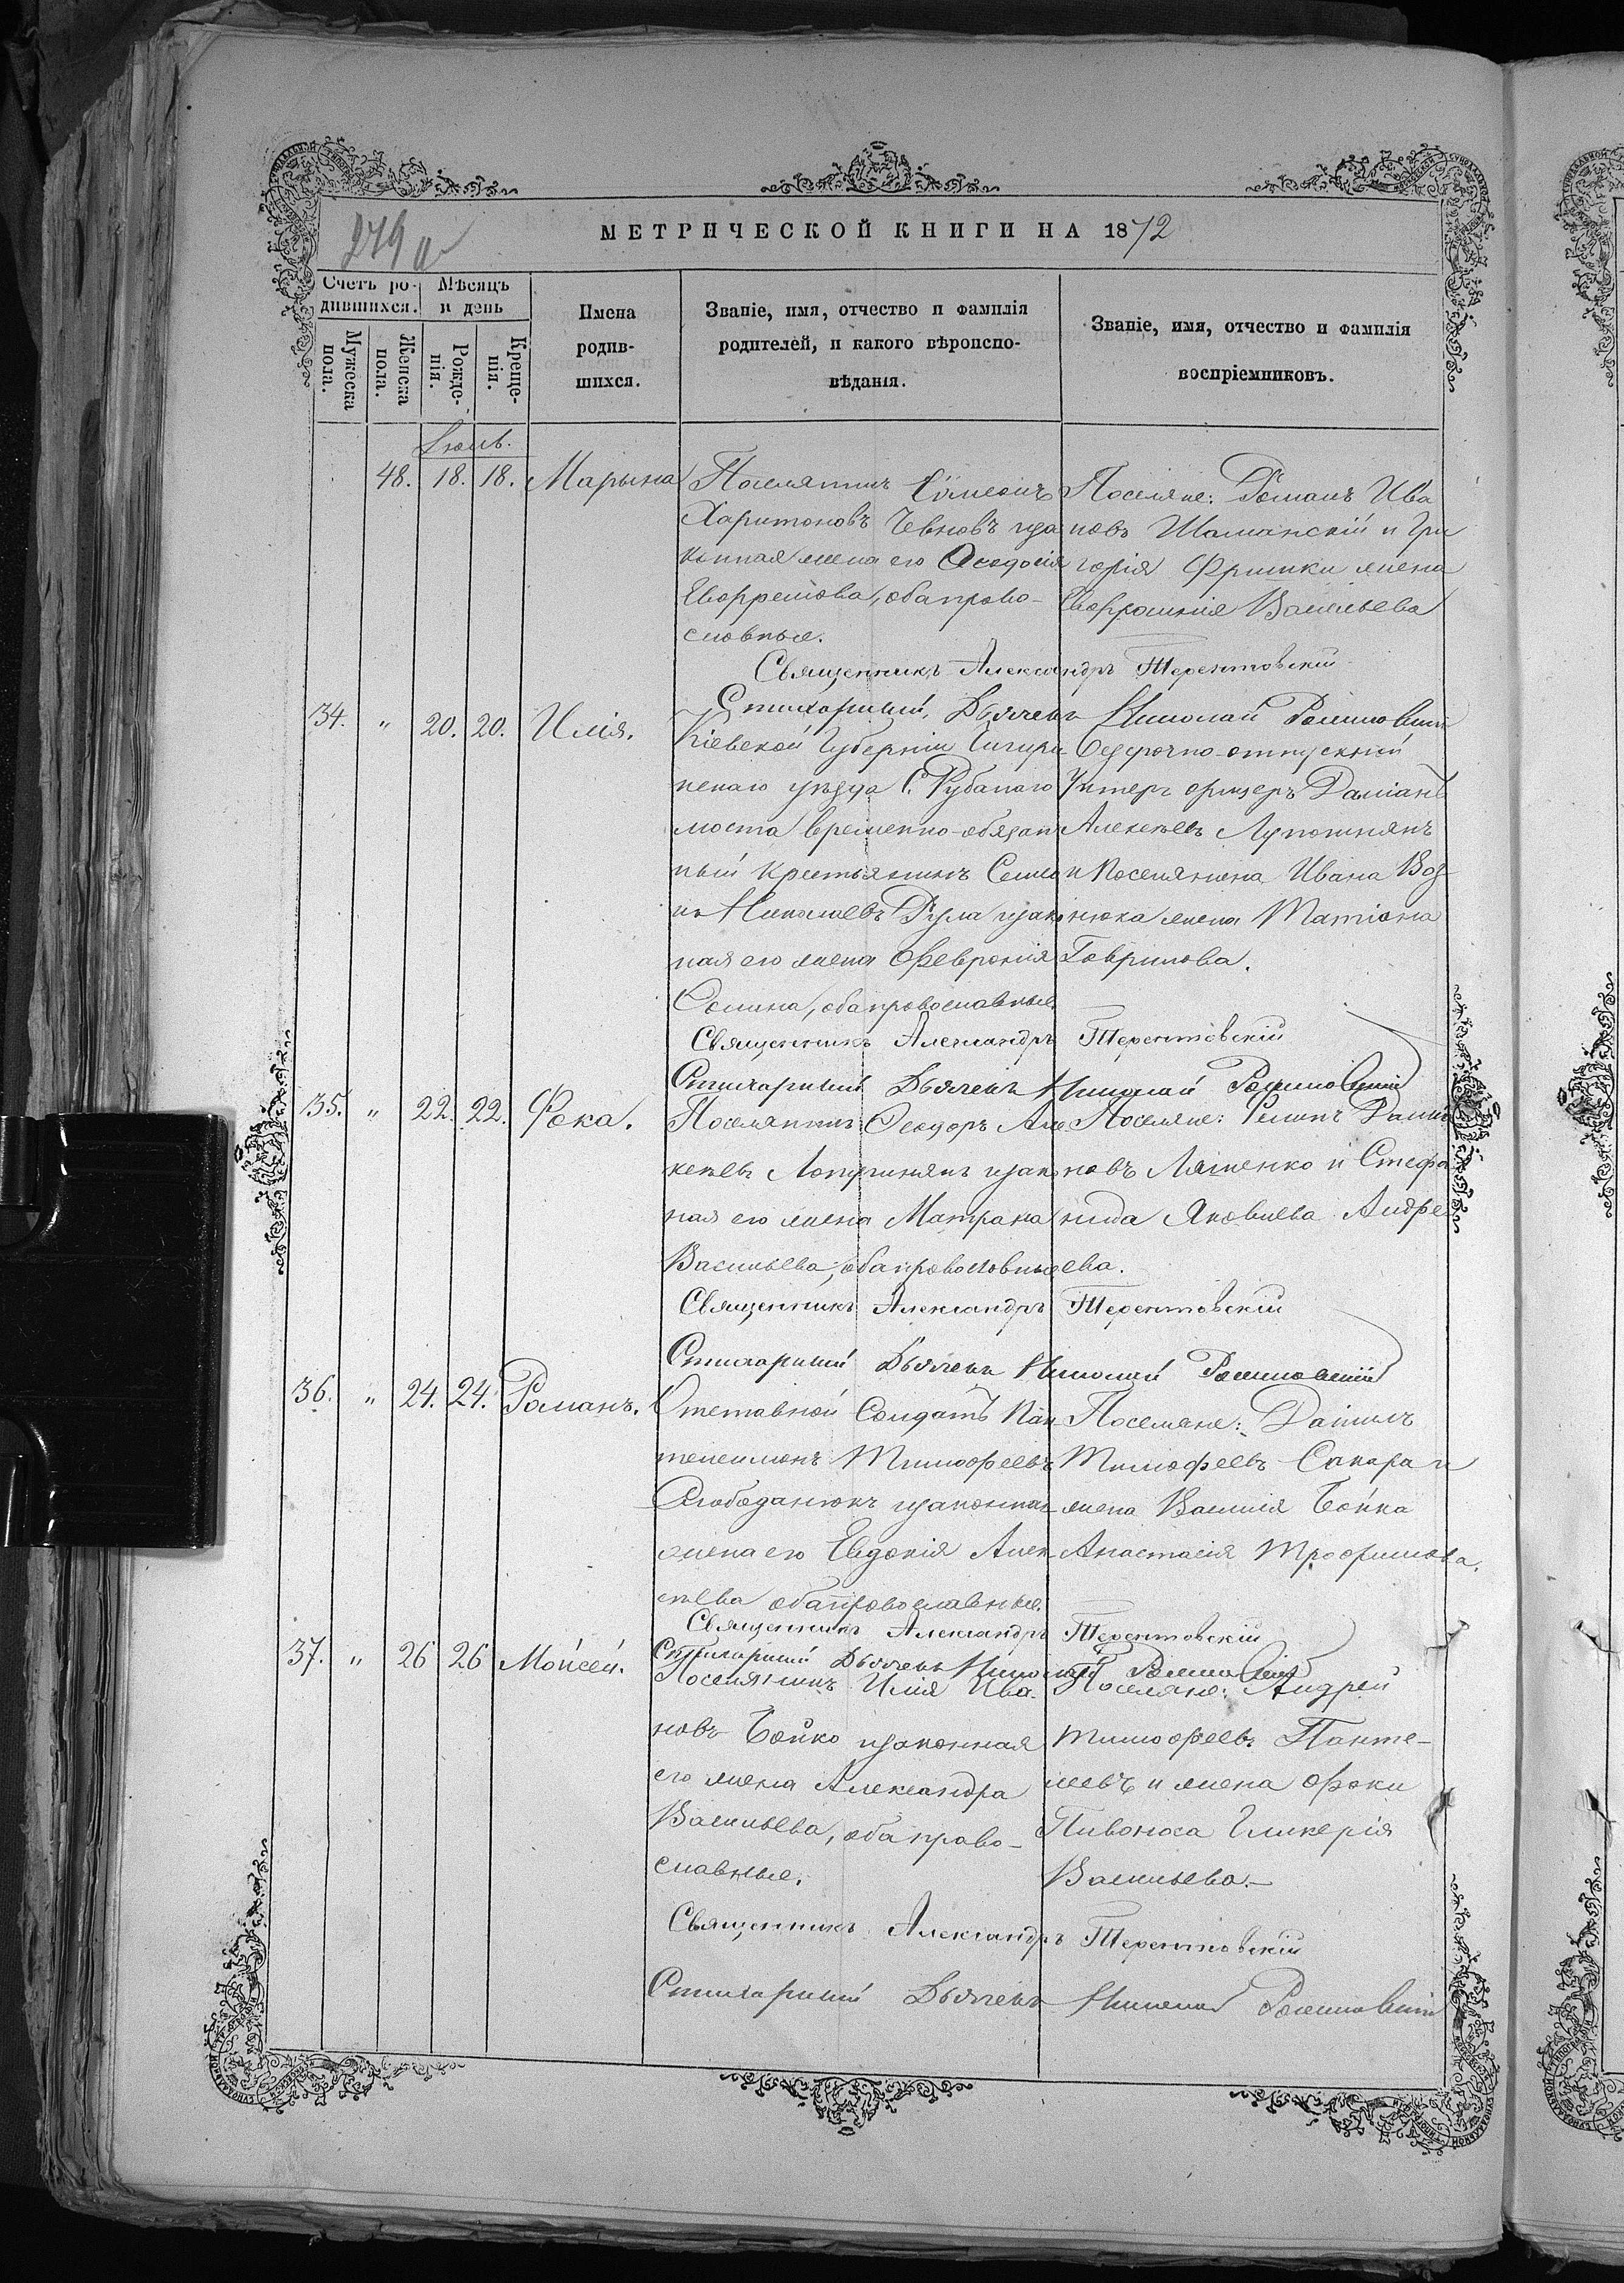 279
МЕТРИЧЕСКОЙ КНИГИ НА 1872
Счетъ ро-
дившихся.
Мѣсяцъ
и день
Мужеска
пола.
Женска
пола.
Рожде-
нія.
Креще-
нія.
Имена
родив-
шихся.
Званіе, имя, отчество и фамилія
родителей, и какого вѣроиспо-
вѣданія.
Званіе, имя, отчество и фамилія
воспріемниковъ.
48. 18. 18. Марына
Поселянинъ Сѵмеонъ
Харитоновъ иза
конная жена его Ѳеодосія
обаправо-
славные.
Поселяне: Романъ Ива
новъ Шаманскій и Гри
горія жена
Васильева
Священникъ Александръ Терентовскій
Стихарный Дьячекъ Николай
34. " 20. 20. Илія.
Кіевской Губерніи Чигири
нскаго уѣзда С. Рубаного
моста временно-обязан
ный крестьянинъ Семео
нъ Николаевъ изакон
ная его жена Февронія
обаправославные.
Безсрочно-отпускный
Унтеръ офицеръ Даміанъ
Алексѣевъ
и Поселянина Ивана Воз
нюка жена Татіана
Гаврилова.
Священникъ Александръ Терентовскій
Стихарный Дьячекъ Николай
35. " 22. 22. Фока.
Поселянинъ Ѳеодоръ Але
ксѣевъ изакон
ная его жена Матрона
Васильева, обаправославные
Поселяне: Дани
новъ Ляшенко и Стефа
нида Яковлева Андре
ева.
Священникъ Александръ Терентовскій
Стихарный Дьячекъ Николай
36. " 24. 24. Романъ.
Отставной Солдатъ Пан
телеимонъ Тимофеевъ
Слободанюкъ изаконная
жена его Евдокія Алек
сѣева обаправославные.
Поселяне: Даніилъ
Тимофеевъ и
жена Василія Бойка
Анастасія Трофимова.
Священникъ Александръ Терентовскій
Стихарный Дьячекъ Николай
37. " 26 26 Мойсей.
Поселянинъ Илія Ива
новъ Бойко изаконная
его жена Александра
Васильева, обаправо-
славные.
Поселяне: Андрей
Тимофеевъ Панте-
леевъ и жена Фоки
Пивоноса Гликерія
Васильева.—
Священникъ Александръ Терентовскій
Стихарный Дьячекъ Николай